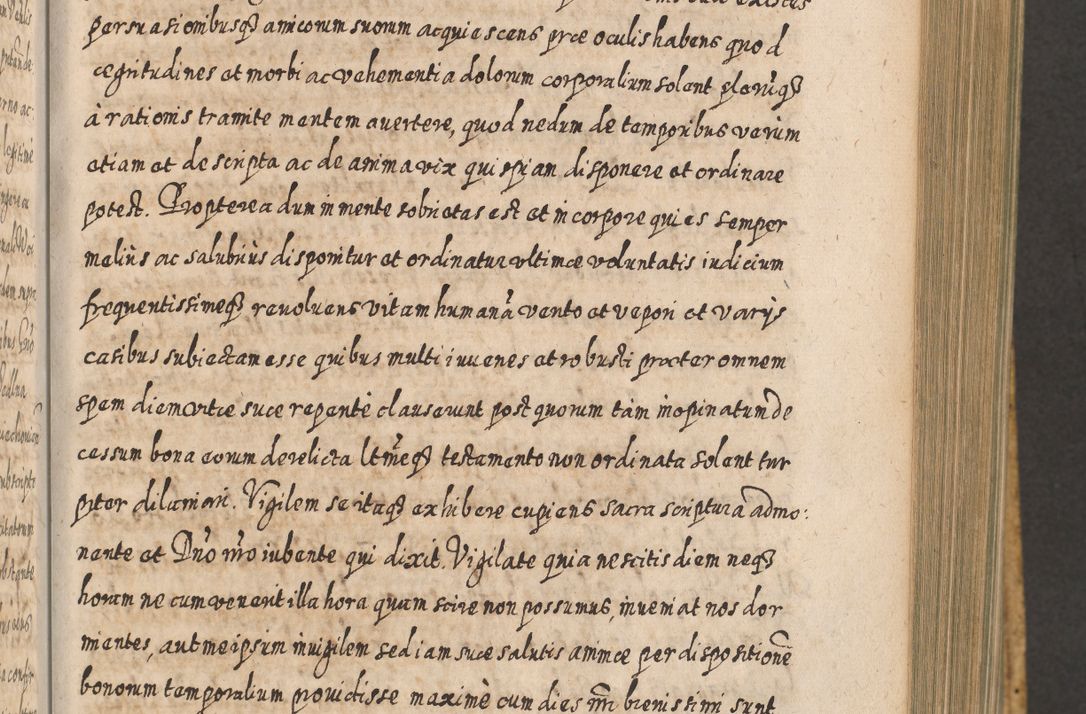 persuasionibusq3 amicorum suorum acquiescens præ oculis habens quod
ægritudines et morbi ac vehementia dolorum corporalium solent plerũq3
à rationis tramite mentem auertere, quod nedum de temporibus verùm
etiam et de scripta ac de anima vix quispiam disponere et ordinare
potest. Propterea dum in mente sobrietas est et in corpore quies semper
meliùs ac salubriùs disponitur et ordinatur vltimæ voluntatis iudicium
frequentissimeq3 reuoluens vitam humanã vento et vepori et varijs
casibus subiectam esse quibus multi iuuenes et robusti præter omnem
spem diem vitæ suæ repentè clauserunt post quorum tàm inopinatum de
cessum bona eorum derelicta ltmeq3 testamento non ordinata solent tur
piter dilaniari. Vigilem se itaq3 exhibere cupiens sacra scriptura admo:
nente et Dño nro iubente qui dixit. Vigilate quia nescitis diem neq3
horam ne cum venerit illa hora quam scire non possumus, inueniat nos dor
mientes, aut me ipsum inuigilem sed iam suæ salutis animæ per dispositionẽ
bonorum temporalium prouidisse maximè cum dies nri breuissimi sunt